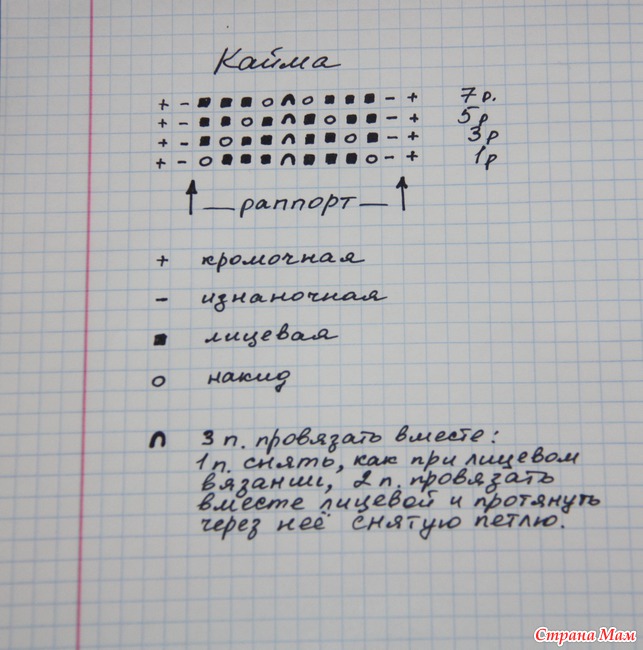 Кайма
+ - ■ ■ ■ o ∩ o ■ ■ ■ - + 7 р.
+ - ■ ■ o ■ ∩ ■ o ■ ■ - + 5 р
+ - ■ o ■ ■ ∩ ■ ■ o ■ - + 3 р
+ - o ■ ■ ■ ∩ ■ ■ ■ o - + 1 р
раппорт
+ кромочная
- изнаночная
■ лицевая
o накид
∩ 3 п. провязать вместе:
1 п. снять, как при лицевом
вязании, 2 п. провязать
вместе лицевой и протянуть
через неё снятую петлю.
Страна Мам